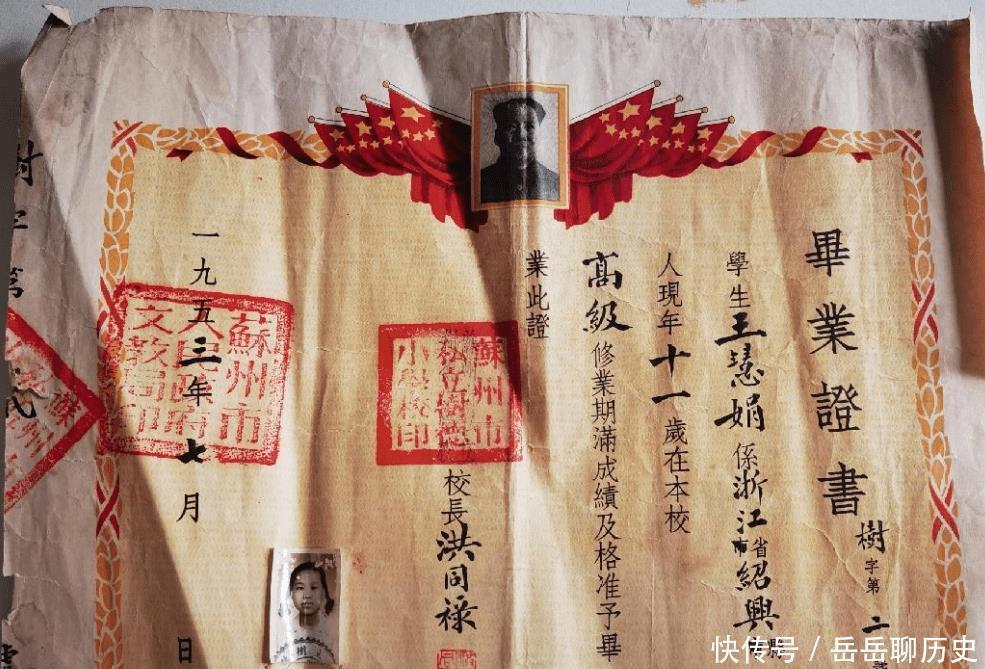 畢業證書
樹字第二
學生王慧娟係浙江省市紹興縣
人現年十一歲在本校
高級修業期滿成績及格准予畢
業此證
校長洪同祿
蘇州市私立樹德小學校印
一九五三年七月 日
蘇州市人民政府文教局印
樹字第
快传号 / 岳岳聊历史